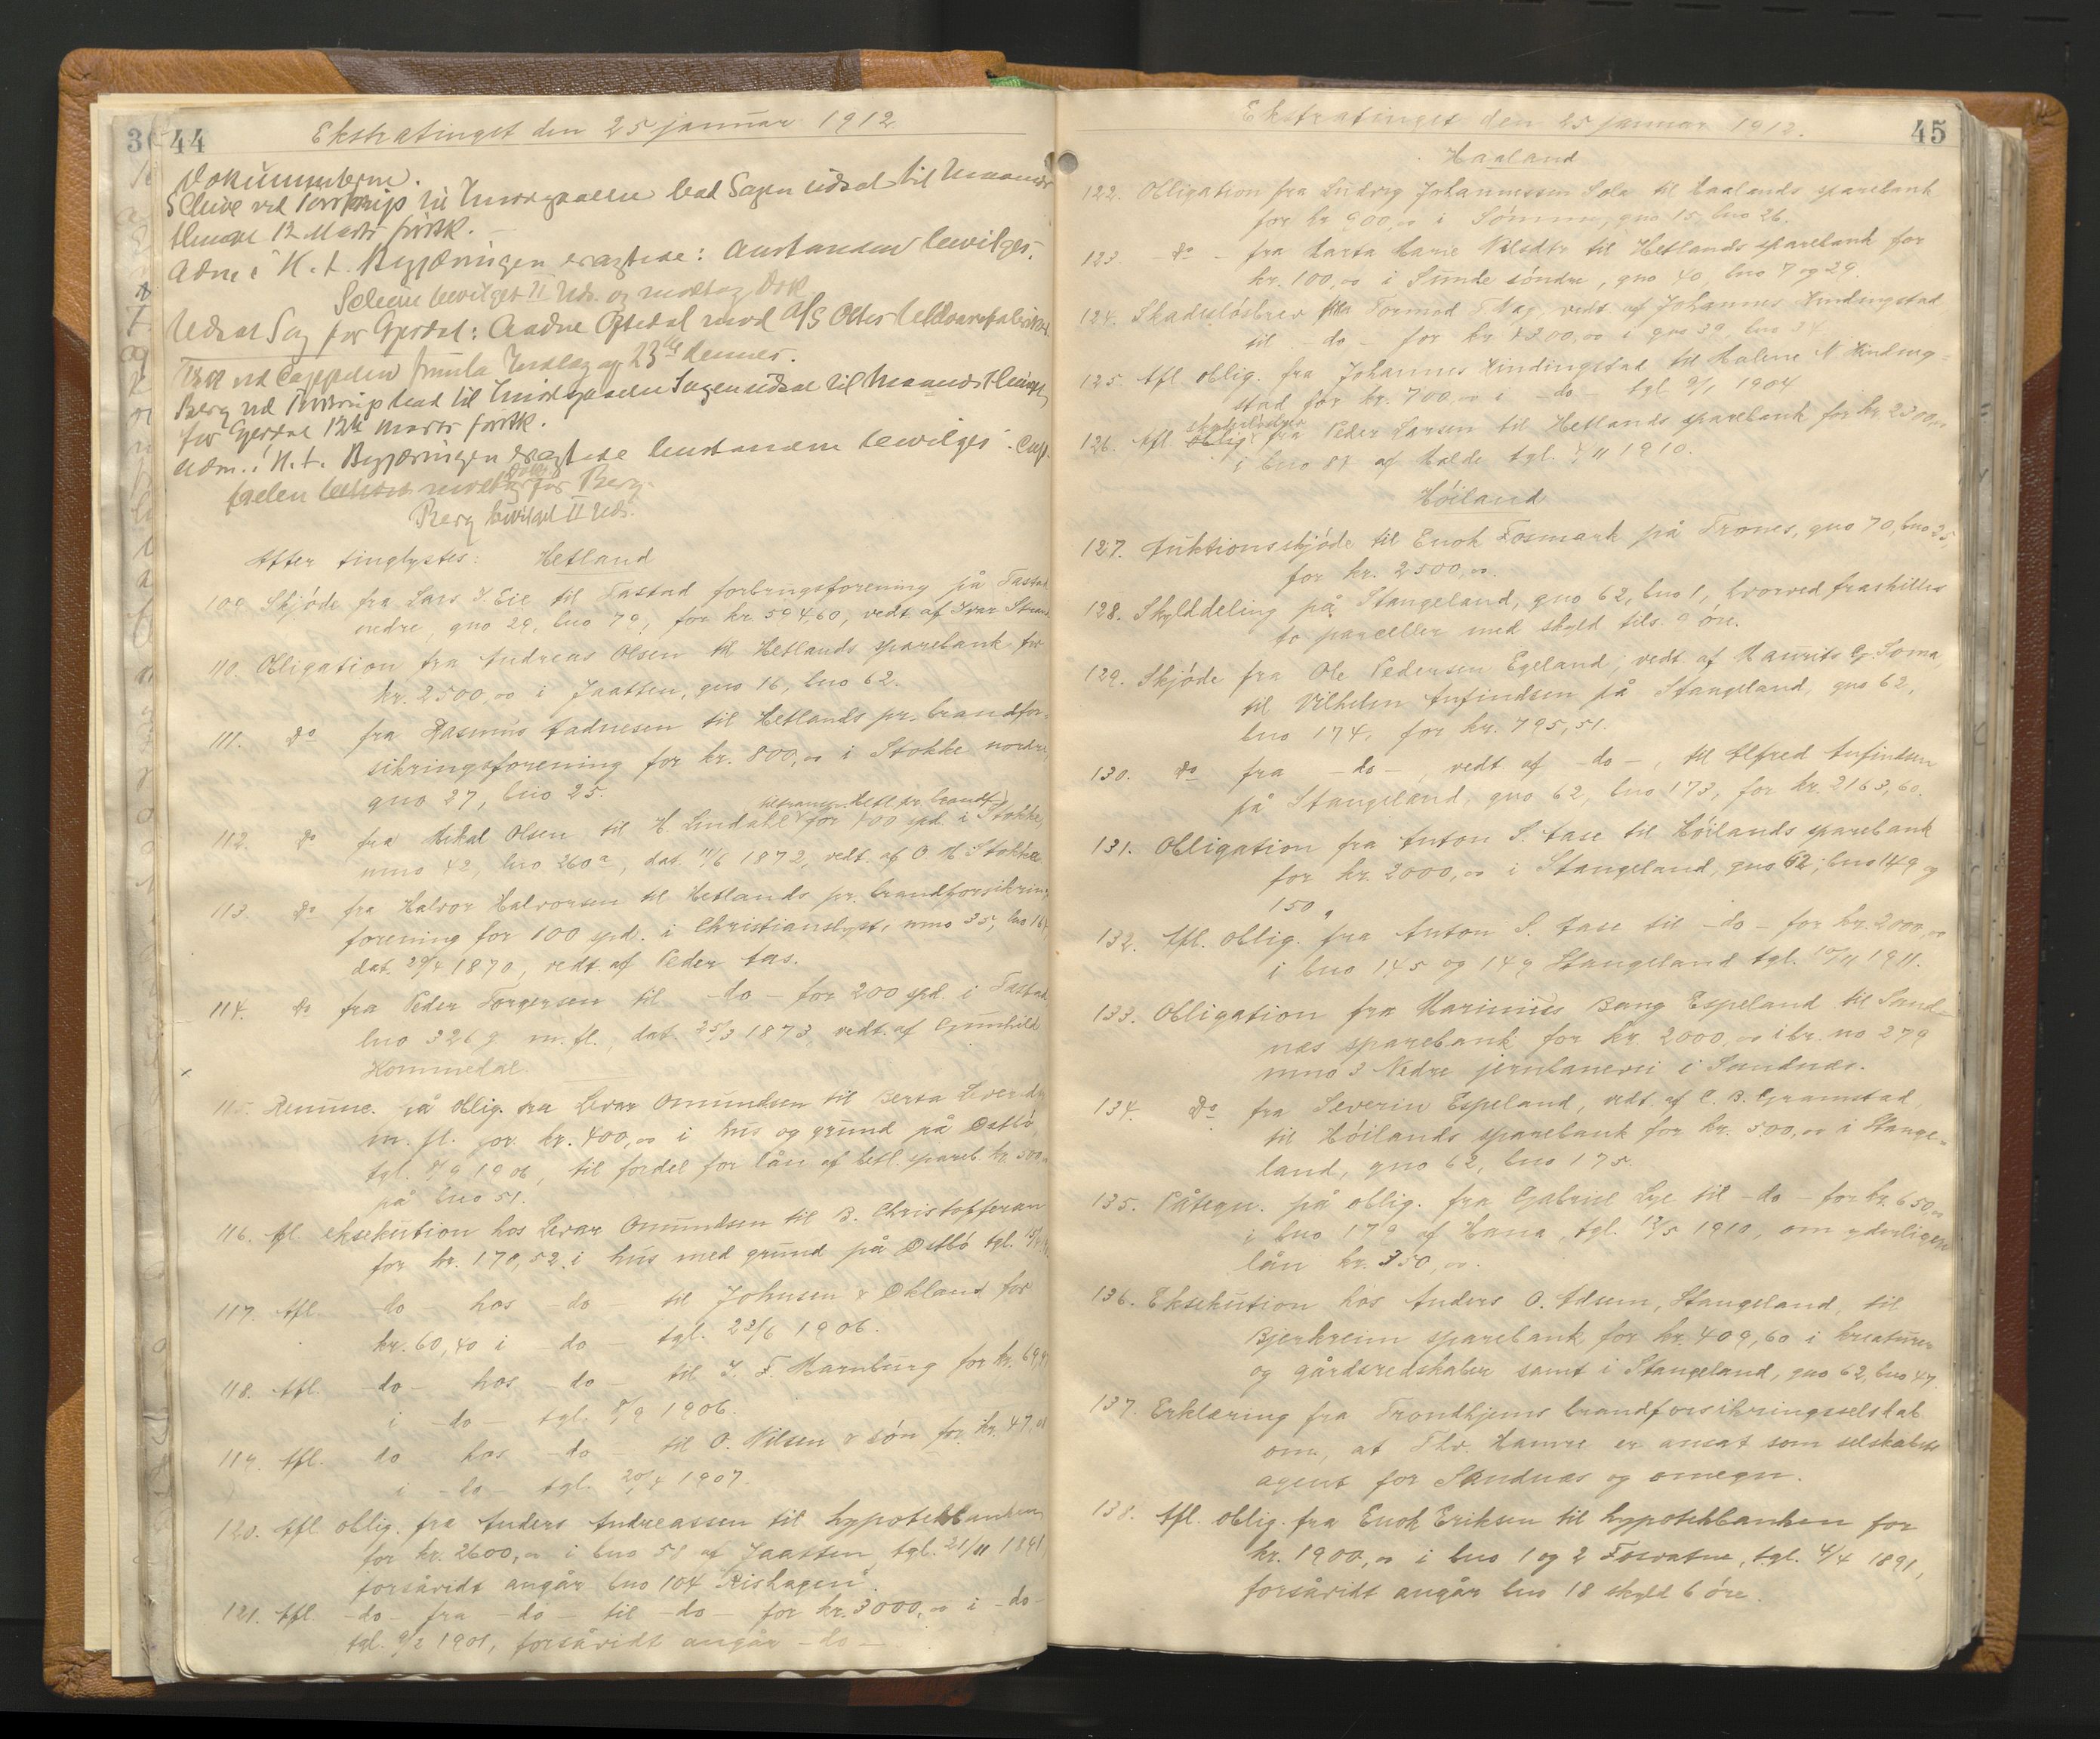 44
Ekstratinget den 25 januar 1912
Dokumenterne.
Scheie ved til Imødegaaelse bad Sagen udsat til Maaneds
12 Marts førstk.
Adm. i H. t. Begjæringen eragtede: Anstanden bevilges.
Scheie bevilget II Uds. og modtog Dok
Udsat Sag for Gjesdal: Aadne Oftedal mod A/S
Berg ved bad til Imødegaaelse Sagen udsat til Maanedsthinget
for Gjesdal 12te Marts førstk.
Adm. i H. t. Begjæringen eragtede Anstanden bevilges.
modtog Dok. for Berg.
Berg bevilget II Uds.
Efter tinglystes: Hetland
109. Skjøde fra Lars J. Eie til Tastad forbrugsforening på Tastad
nedre, gno 29, bno 79, for kr. 594,60, vedt. af Ivar Strand
110. Obligation fra Andreas Olsen til Hetlands sparebank for
kr. 2500,00 i Jaatten, gno 16, bno 62.
111. Do fra Rasmus Aadnesen til Hetlands pr. brandfor-
sikringsforening for kr. 800,00 i Stokke nordre,
gno 27, bno 25.
112. Do fra Mikal Olsen til H. Lindahl for 100 spd. i Stokke,
mno 42, lno 260a, dat. 11/6 1872, vedt. af O. H. Stokke
113. Do fra Halvor Halvorsen til Hetlands pr. brandforsikrings
forening for 100 spd. i Christianslyst, mno 35,
dat. 29/4 1870, vedt. af Peder Aas.
114. Do fra Peder Torgersen til -do- for 200 spd. i Tastad
lno 326 m. fl., dat. 25/3 1873, vedt. af Gunhild
Hommedal.
115. Renunc. på oblig. fra Levar Omundsen til Berta
m. fl. for kr. 400,00 i hus og grund på Østbø,
tgl. 8/9 1906, til fordel for lån af hetl. spareb. kr. 500
på bno 51.
116. Afl. eksekution hos Levar Omundsen til B. Christoffersen
for kr. 170,52 i hus med grund på Østbø tgl.
117. Afl. -do- hos -do- til Johnsen & Økland for
kr. 60,40 i -do- tgl. 23/6 1906.
118. Afl. -do- hos -do- til J. F. Marnburg for kr.
i -do- tgl. 8/9 1906.
119. Afl. do hos -do- til O. Nilsen & søn for kr. 47,
i -do- tgl. 20/4 1907.
120. Afl. oblig. fra Anders Andreassen til hypotekbanken
for kr. 2600,00 i bno 58 af Jaatten, tgl. 21/11 1891,
forsåvidt angår bno 104 "Rishagen".
121. Afl. -do- fra -do- til -do- for kr. 3000,00 i -do-
tgl. 9/2 1901, forsåvidt angår -do-
45
Ekstratinget den 25 januar 1912.
Haaland
122. Obligation fra Ludvig Johannessen Sola til Haalands sparebank
for kr. 900,00 i Sømme, gno 15, bno 26.
123. Do - fra Marta Marie Nilsdtr til Hetlands sparebank for
kr. 100,00 i Sunde søndre, gno 40, bno 7 og 29.
124. Skadesløsbrev fra Tormod S. Nag, vedt. af Johannes Hindingstad
til -do- for kr. 4300,00 i gno 39, bno 34.
125. Afl. oblig. fra Johannes Hindingstad til Malene N. Hinding-
stad for kr. 700,00 i -do- tgl. 9/1 1904.
126. Afl. oblig. fra Peder Larsen til Hetlands sparebank for kr. 2300,00
i bno 81 af Malde tgl. 4/11 1910.
Høiland
127. Auktionsskjøde til Enok Fosmark på Trones, gno 70, bno 35,
for kr. 2500,00.
128. Skylddeling på Stangeland, gno 62, bno 1, hvorved fraskilles
to parceller med skyld tils. 9 øre.
129. Skjøde fra Ole Pedersen Egeland, vedt. af Maurits G. Soma,
til Vilhelm Anfindsen på Stangeland, gno 62,
bno 174, for kr. 795,51.
130. Do fra -do-, vedt. af -do-, til Alfred Anfindsen
på Stangeland, gno 62, bno 173, for kr. 2163,60.
131. Obligation fra Anton S. Aase til Høilands sparebank
for kr. 2000,00 i Stangeland, gno 62, bno 149 og
150.
132. Afl. oblig. fra Anton S. Aase til -do- for kr. 2000,00
i bno 145 og 149 Stangeland tgl. 10/11 1911.
133. Obligation fra Marinius Bang Espeland til Sand-
næs sparebank for kr. 2000,00 i br. no 279
mno 3 Nedre jernbanevei i Sandnæs.
134. Do fra Severin Espeland, vedt. af C. B. Gramstad,
til Høilands sparebank for kr. 500,00 i Stange-
land, gno 62, bno 175.
135. Påtegn. på oblig. fra Gabriel Lye til -do- for kr. 650,00
i bno 179 af Hana, tgl. 12/5 1910, om yderligere
lån kr. 350,00.
136. Eksekution hos Anders O. Adsem, Stangeland, til
Bjerkreim sparebank for kr. 409,60 i kreaturer
og gårdsredskaber samt i Stangeland, gno 62, bno 47.
137. Erklæring fra Trondhjems brandforsikringsselskab
om, at Thv. Hamre er ansat som selskabets
agent for Sandnæs og omegn.
138. Afl. oblig. fra Enok Eriksen til hypotekbanken for
kr. 1900,00 i bno 1 og 2 Fosvatne, tgl. 4/4 1891,
forsåvidt angår bno 18 skyld 6 øre.